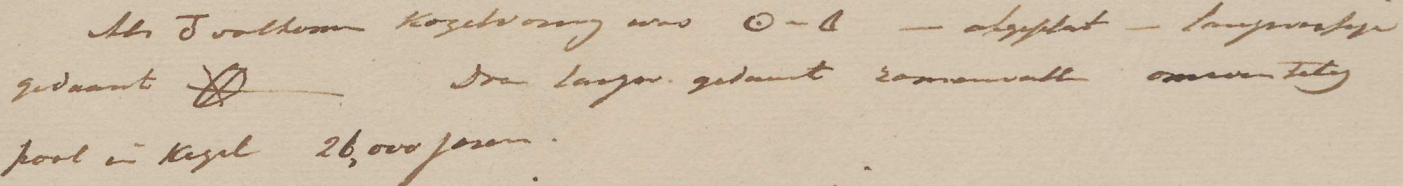 Als volkomen Kogelvormig was ☉ – ☾ — afgeplat — langwerpige
gedaant Dan langw. gedaant zamenvall omwenteling
pool in Kegel 26,000 jaren.